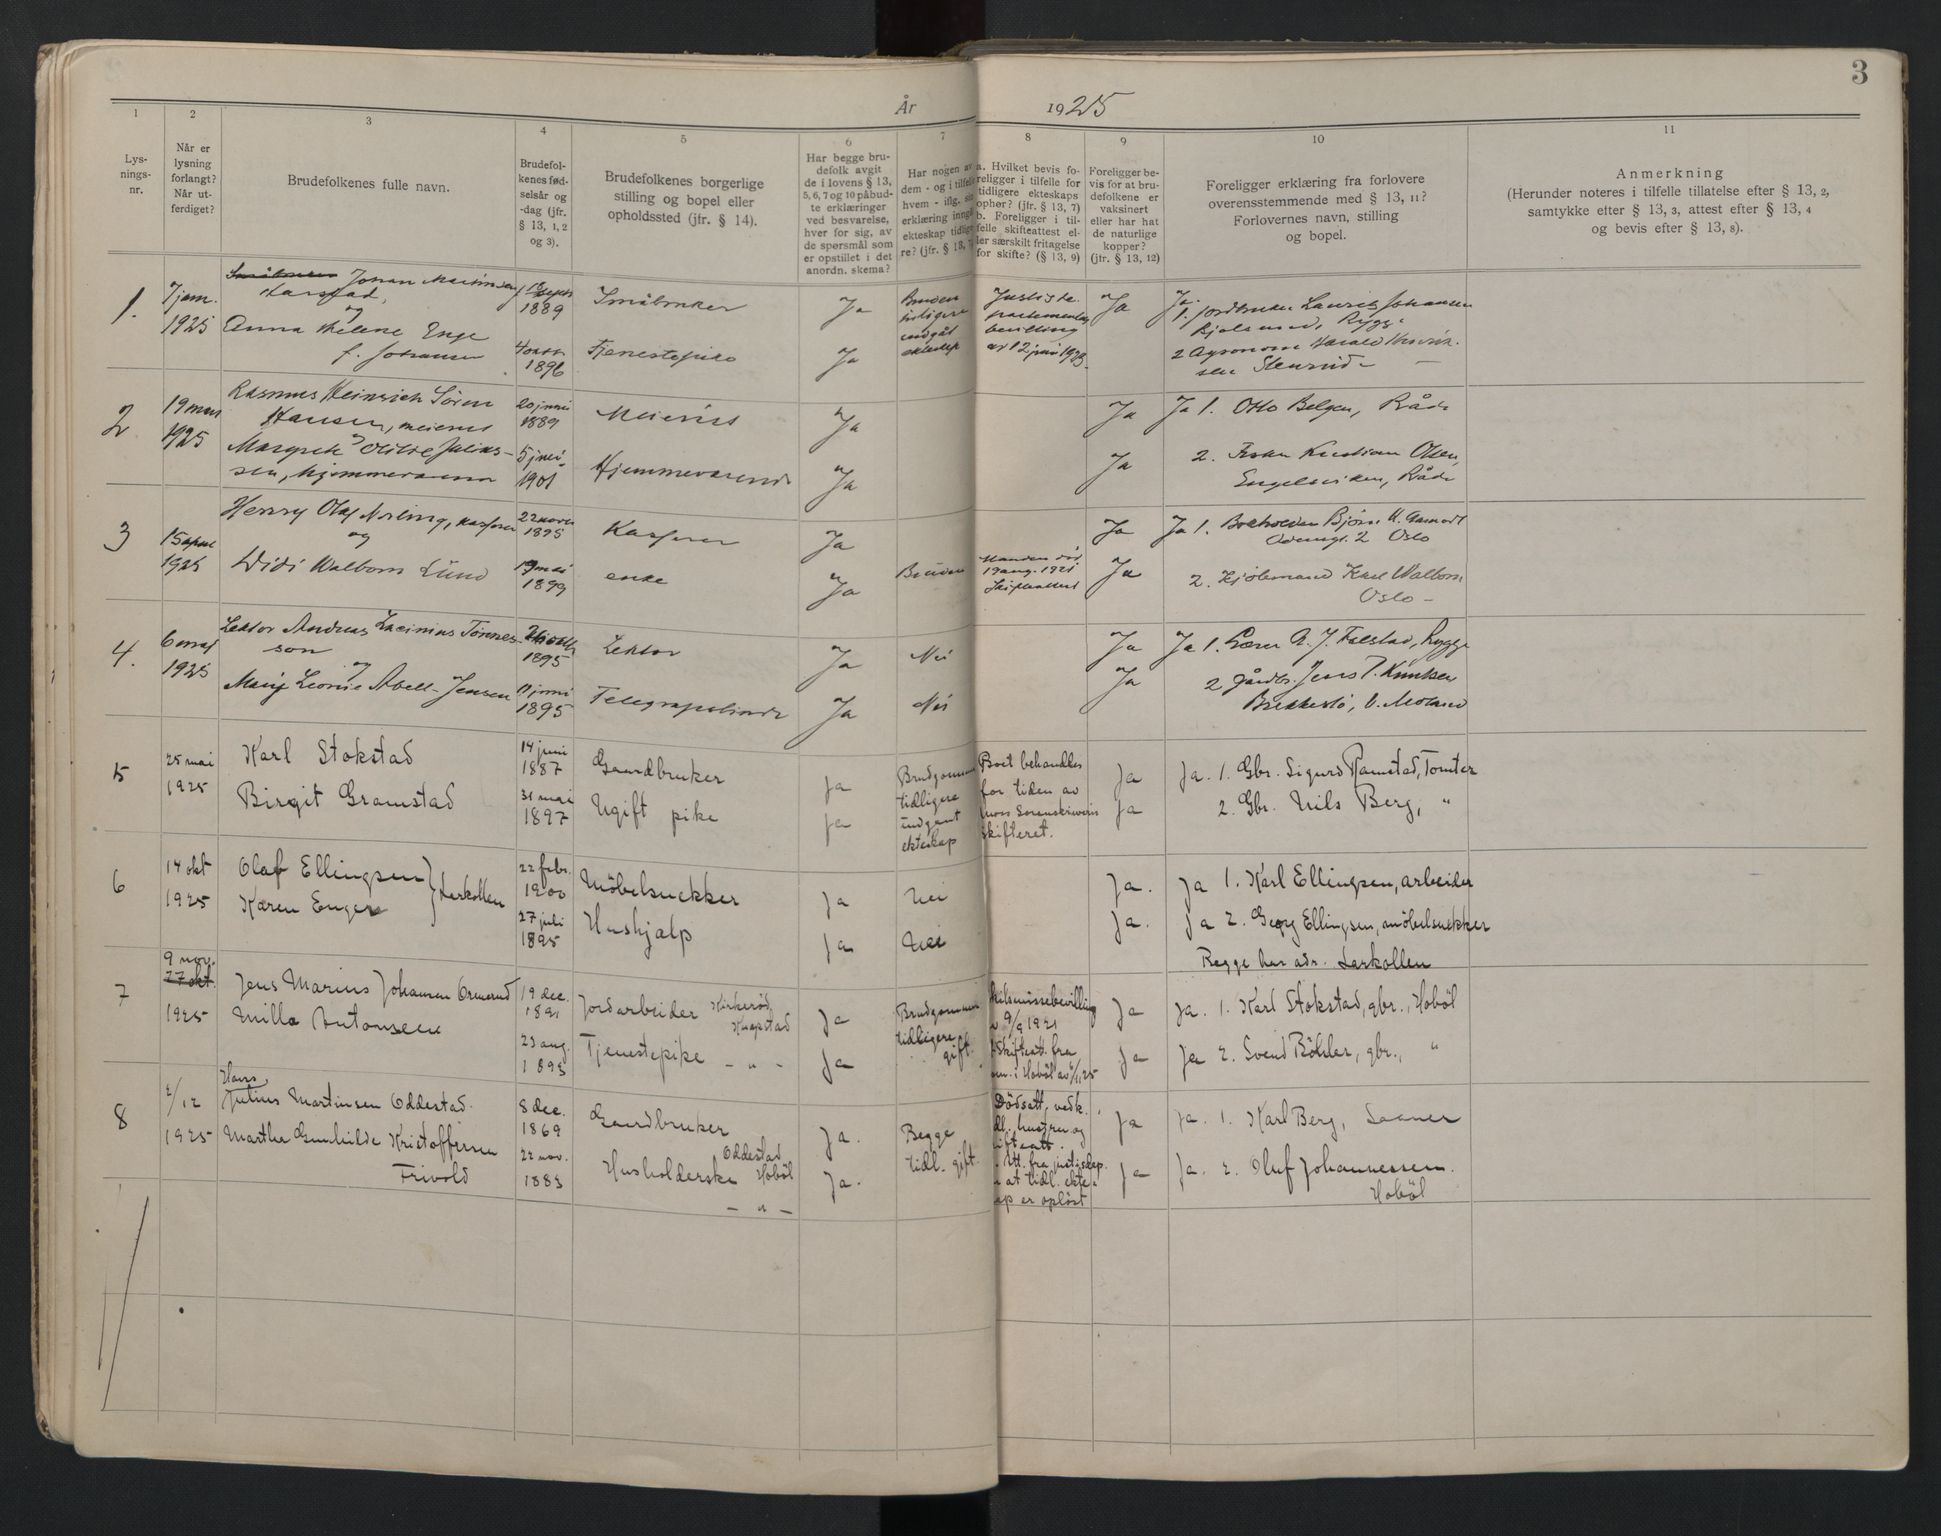 År 1925
3
1
2
3
4
5
6
7
8
9
10
11
Lys-
nings-
nr.
Når er
lysning
forlangt?
Når ut-
ferdiget?
Brudefolkenes fulle navn.
Brudefol-
kenes fød-
selsår og
-dag (jfr.
§ 13, 1, 2
og 3).
Brudefolkenes borgerlige
stilling og bopel eller
opholdssted (jfr. § 14).
Har begge bru-
defolk avgit
de i lovens § 13,
5, 6, 7 og 10 påbud-
te erklæringer
ved besvarelse,
hver for sig, av
de spørsmål som
er opstillet i det
anordn. skema?
Har nogen av
dem - og i tilfelle
hvem - iflg. sin
erklæring inngåt
ekteskap tidlige-
re? (jfr. § 13, 7)
a. Hvilket bevis fo-
religger i tilfelle for
tidligere ekteskaps
ophør? (jfr. § 13, 7)
b. Foreligger i til-
felle skifteattest el-
ler særskilt fritagelse
for skifte? (§ 13, 9)
Foreligger be-
vis for at bru-
defolkene er
vaksinert
eller har hat
de naturlige
kopper?
(jfr. § 13, 12)
Foreligger erklæring fra forlovere
overensstemmende med § 13, 11?
Forlovernes navn, stilling
og bopel.
Anmerkning
(Herunder noteres i tilfelle tillatelse efter § 13, 2,
samtykke efter § 13, 3, attest efter § 13, 4
og bevis efter § 13, 8).
1.
7 jan.
1925
Johan Martinsen
og
Anna Helene Enge
f. Johansen
1889
4 oktr
1896
Småbruker
Tjenestepike
Ja
Ja
Bruden
tidligere
indgåt
ekteskap
Justisde-
partementets
bevilling
av 12 juni 1923.
Ja
Ja.
1. Jordbruker Laurits Johansen
Rygge
2 Agronom Harald
2
19 mars
1925
Rasmus Heinrich Sören
Hansen, meierist
og
Margrete Otilie Julius-
sen, hjemmeværende
20 juni
1889
5 juni
1901
Meierist
Hjemmeværende
Ja
Ja
Ja
Ja
Ja 1. Otto Belgen, Råde
2. Fisker Kristian Olsen,
Engelsviken, Råde
3
15 april
1925
Henry Olaf Norling, kasserer
og
Didi Walborn Lund
22 novbr
1895
19 mai
1899
Kasserer
enke
Ja
Ja
Bruden
Manden död
19 aug. 1921
Skifteattest
Ja
Ja
Ja 1.
2 Oslo
2. Kjölemand Karl Walborn
Oslo -
4.
6 mai
1925
Lektor Andreas Lacinius Tönnes-
son
og
Marie Leonie Abell-Jensen
1895
11 juni
1895
Lektor
Telegrafistinde
Ja
Ja
Nei
Nei
Ja
Ja
Ja 1. Lærer A. J. Falstad, Rygge
2 gårdbr. Jens T. Knutsen
Brekkestö, V. Moland
5
25 mai
1925
Karl Stokstad
Birgit Gramstad
14 juni
1887
31 mai
1897
Gaardbruker
Ugift pike
Ja
Ja
Brudgommen
tidligere
indgaat
ekteskap
Boet behandles
for tiden av
Moss Sorenskriveris
skifteret.
Ja
Ja
Ja. 1. Gbr. Sigurd Ramstad, Tomter
2. Gbr. Nils Berg, "
6
14 okt
1925
Olaf Ellingsen
Karen Enger
Larkollen
22 febr.
1900
27 juli
1895
Möbelsnekker
Hushjalp
Ja
Ja
Nei
Nei
Ja.
Ja.
Ja 1. Karl Ellingsen, arbeider
Ja 2. Georg Ellingsen, möbelsnekker
Begge har adr. Larkollen
7
9 nov.
27 okt.
1925
Jens Marius Johansen Ormerud
Milla Antonsen
19 dec.
1891
23 aug.
1893
Jordarbeider Kirkeröd
Knapstad
Tjenestepike - " -
Ja
Ja
Brudgommen
tidligere
gift.
skilsmissebevilling
9/9 1921
Skifteatt. fra
i Hobøl av
Ja
Ja
Ja. 1. Karl Stokstad, gbr., Hobøl
Ja 2. Svend Böhler, gbr., "
8
2/12
1925
Hans
Julius Martinsen Oddestad.
Marthe Gunhilde Kristoffersen
Frivold
8 dec.
1869
22 nov.
1883
Gaardbruker
Oddestad
Husholderske Hobøl
- " -
Ja.
Ja.
Begge
tidl. gift.
Dödsatt. vedk.
hustru og
Att. fra justisdep.
at tidl. ekte-
er opløst
Ja
Ja
Ja. 1. Karl Berg, Saaner
Ja. 2. Oluf Johannessen.
Hobøl